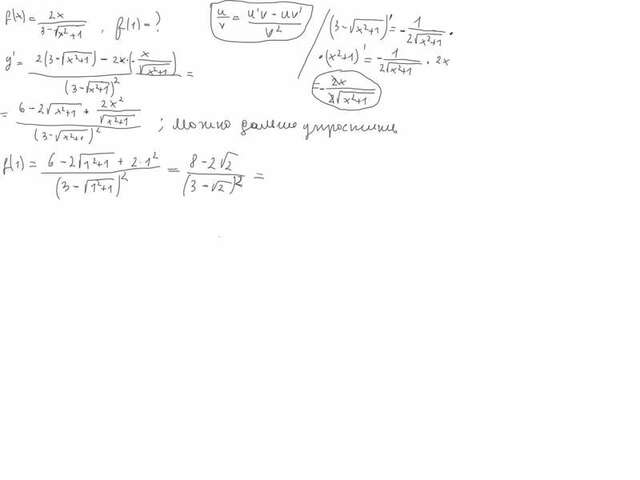 f(x) = 2x / (3 - √(x²+1)) , f(1) = ?
u/v = (u'v - uv') / v²
(3 - √(x²+1))' = - 1 / (2√(x²+1)) ·
· (x²+1)' = - 1 / (2√(x²+1)) · 2x
= - 2x / (2√(x²+1))
y' = (2(3 - √(x²+1)) - 2x·(- x / √(x²+1))) / (3 - √(x²+1))² =
= (6 - 2√(x²+1) + 2x² / √(x²+1)) / (3 - √(x²+1))² ; можно дальше упростить
f(1) = (6 - 2√(1²+1) + 2·1²) / (3 - √(1²+1))² = (8 - 2√2) / (3 - √2)² =